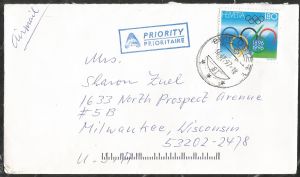 Airmail
A PRIORITY
PRIORITAIRE
HELVETIA 180
1896
1996
Mrs.
Sharon Zuel
1633 North Prospect Avenue
# 5 B
Milwaukee, Wisconsin
53202-2478
U-S-A